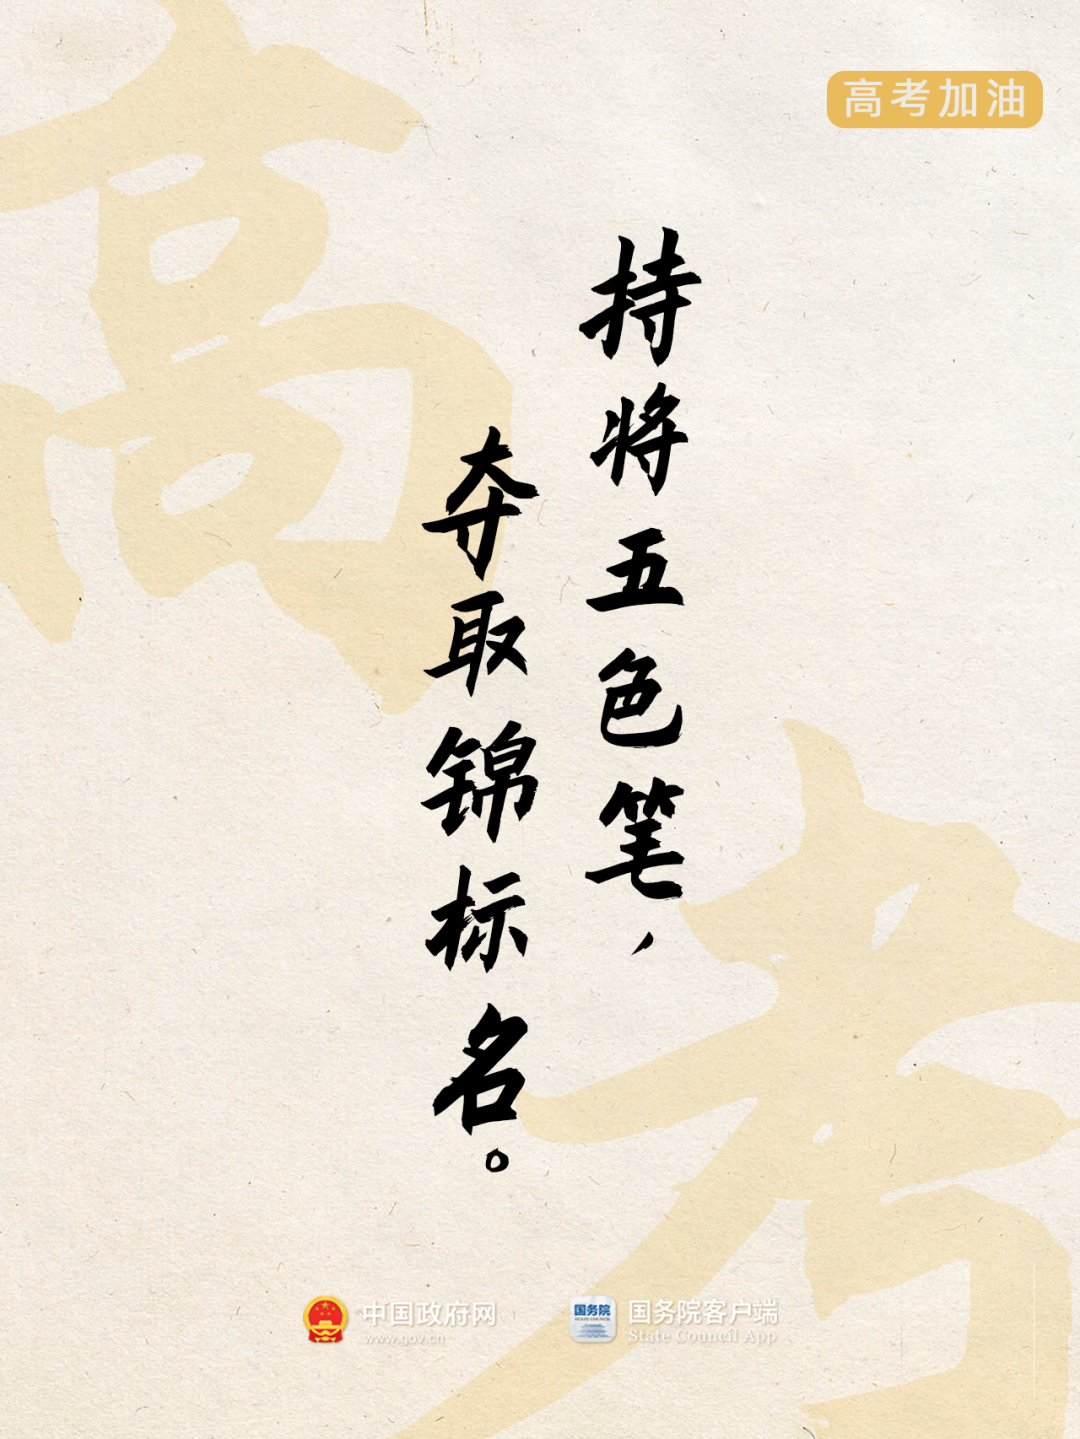 高考加油
持将五色笔，
夺取锦标名。
高
考
中国政府网
www.gov.cn
国务院
STATE COUNCIL
国务院客户端
State Council App